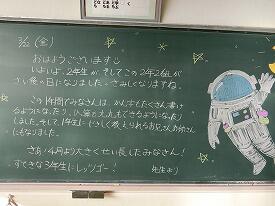 3/22 (金)
おはようございます
いよいよ、2年生が、そしてこの2年2組が
さい後の日になりました。さみしくなりますね。
この1年間でみなさんは、かん字もたくさん書け
るようになったり、ひっ算や九九もできるようになったり
しました。そして、1年生に やさしく教えられるお兄さんお姉さん
にもなりました。
さあ！4月より大きくせい長したみなさん！
すてきな3年生にレッツゴー！ 先生より